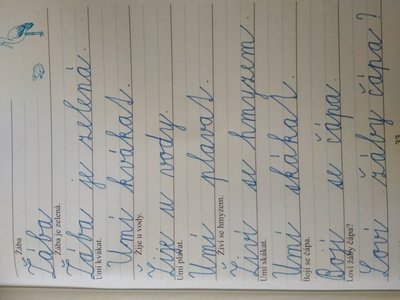 Žába
Žába
Žába je zelená.
Žába je zelená.
Umí kvákat.
Umí kvákat.
Žije u vody.
Žije u vody.
Umí plavat.
Umí plavat.
Živí se hmyzem.
Živí se hmyzem.
Umí skákat.
Umí skákat.
Bojí se čápa.
Bojí se čápa.
Loví žáby čápa?
Loví žáby čápa?
33